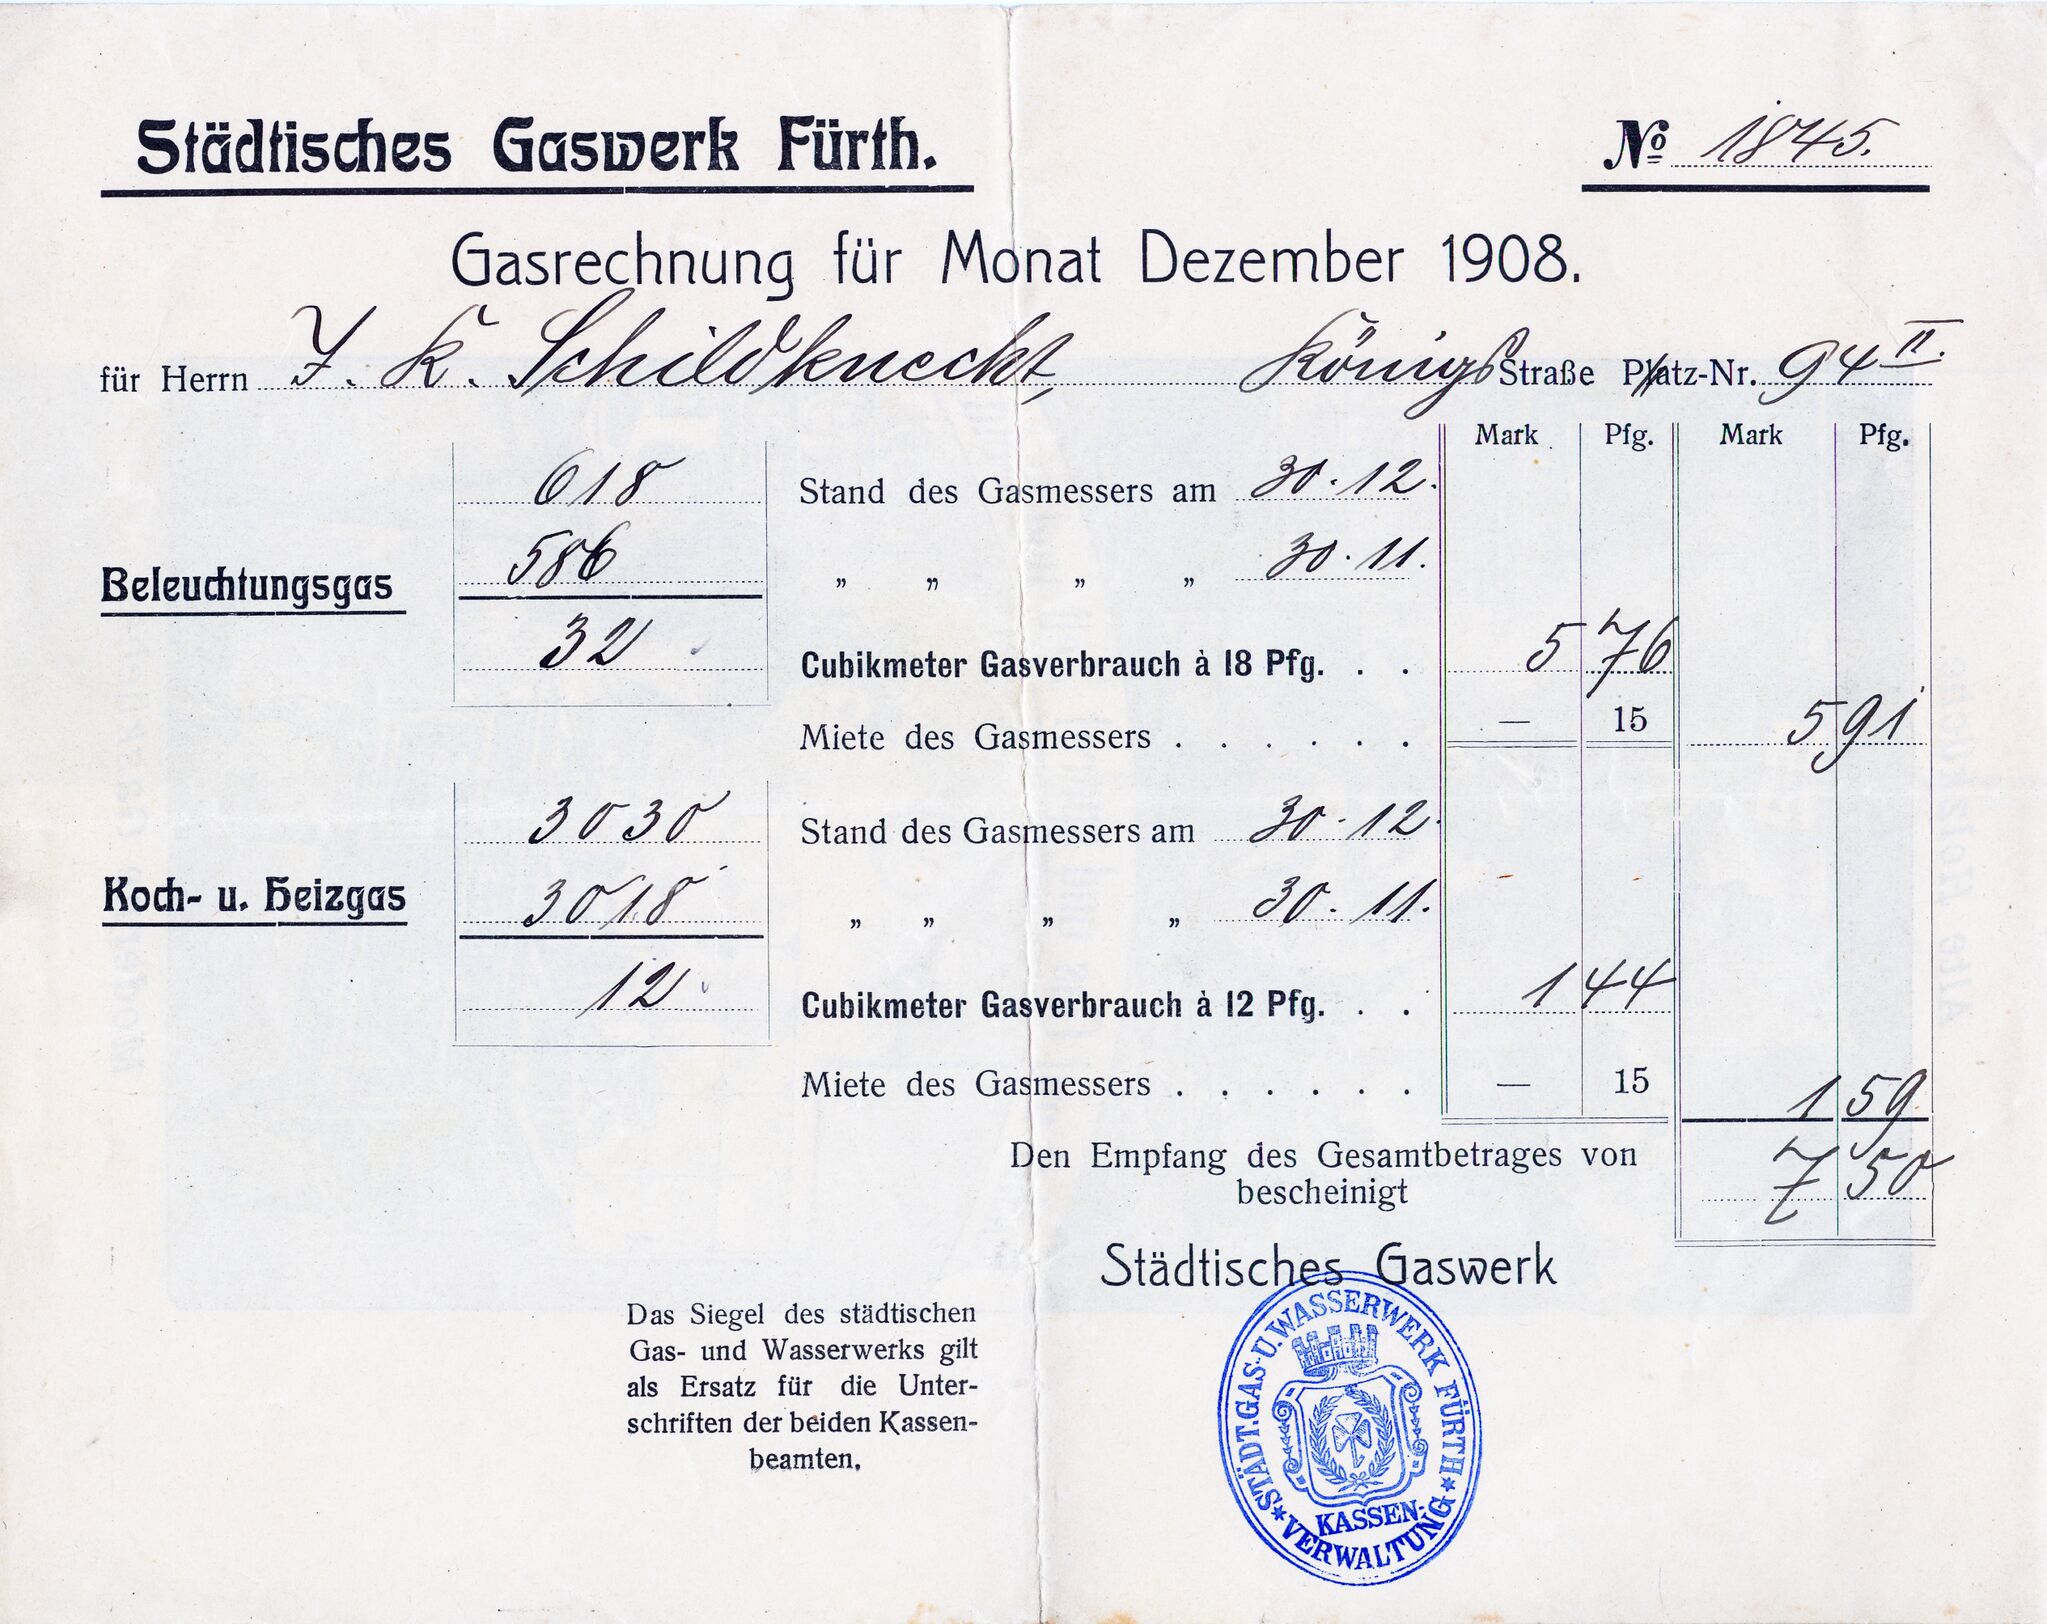 Städtisches Gaswerk Fürth.
No 1845.
Gasrechnung für Monat Dezember 1908.
für Herrn J. K. Schildknecht, Königs Straße Platz-Nr. 94 II.
Mark Pfg. Mark Pfg.
618 Stand des Gasmessers am 30.12.
586 „ „ „ „ 30.11.
Beleuchtungsgas
32 Cubikmeter Gasverbrauch à 18 Pfg. . . 5 76
Miete des Gasmessers . . . . . . — 15 5 91
3030 Stand des Gasmessers am 30.12.
Koch- u. Heizgas
3018 „ „ „ „ 30.11.
12 Cubikmeter Gasverbrauch à 12 Pfg. . . 1 44
Miete des Gasmessers . . . . . . — 15 1 59
Den Empfang des Gesamtbetrages von 7 50
bescheinigt
Städtisches Gaswerk
Das Siegel des städtischen
Gas- und Wasserwerks gilt
als Ersatz für die Unter-
schriften der beiden Kassen-
beamten.
STÄDT. GAS- U. WASSERWERK FÜRTH
KASSEN-
VERWALTUNG